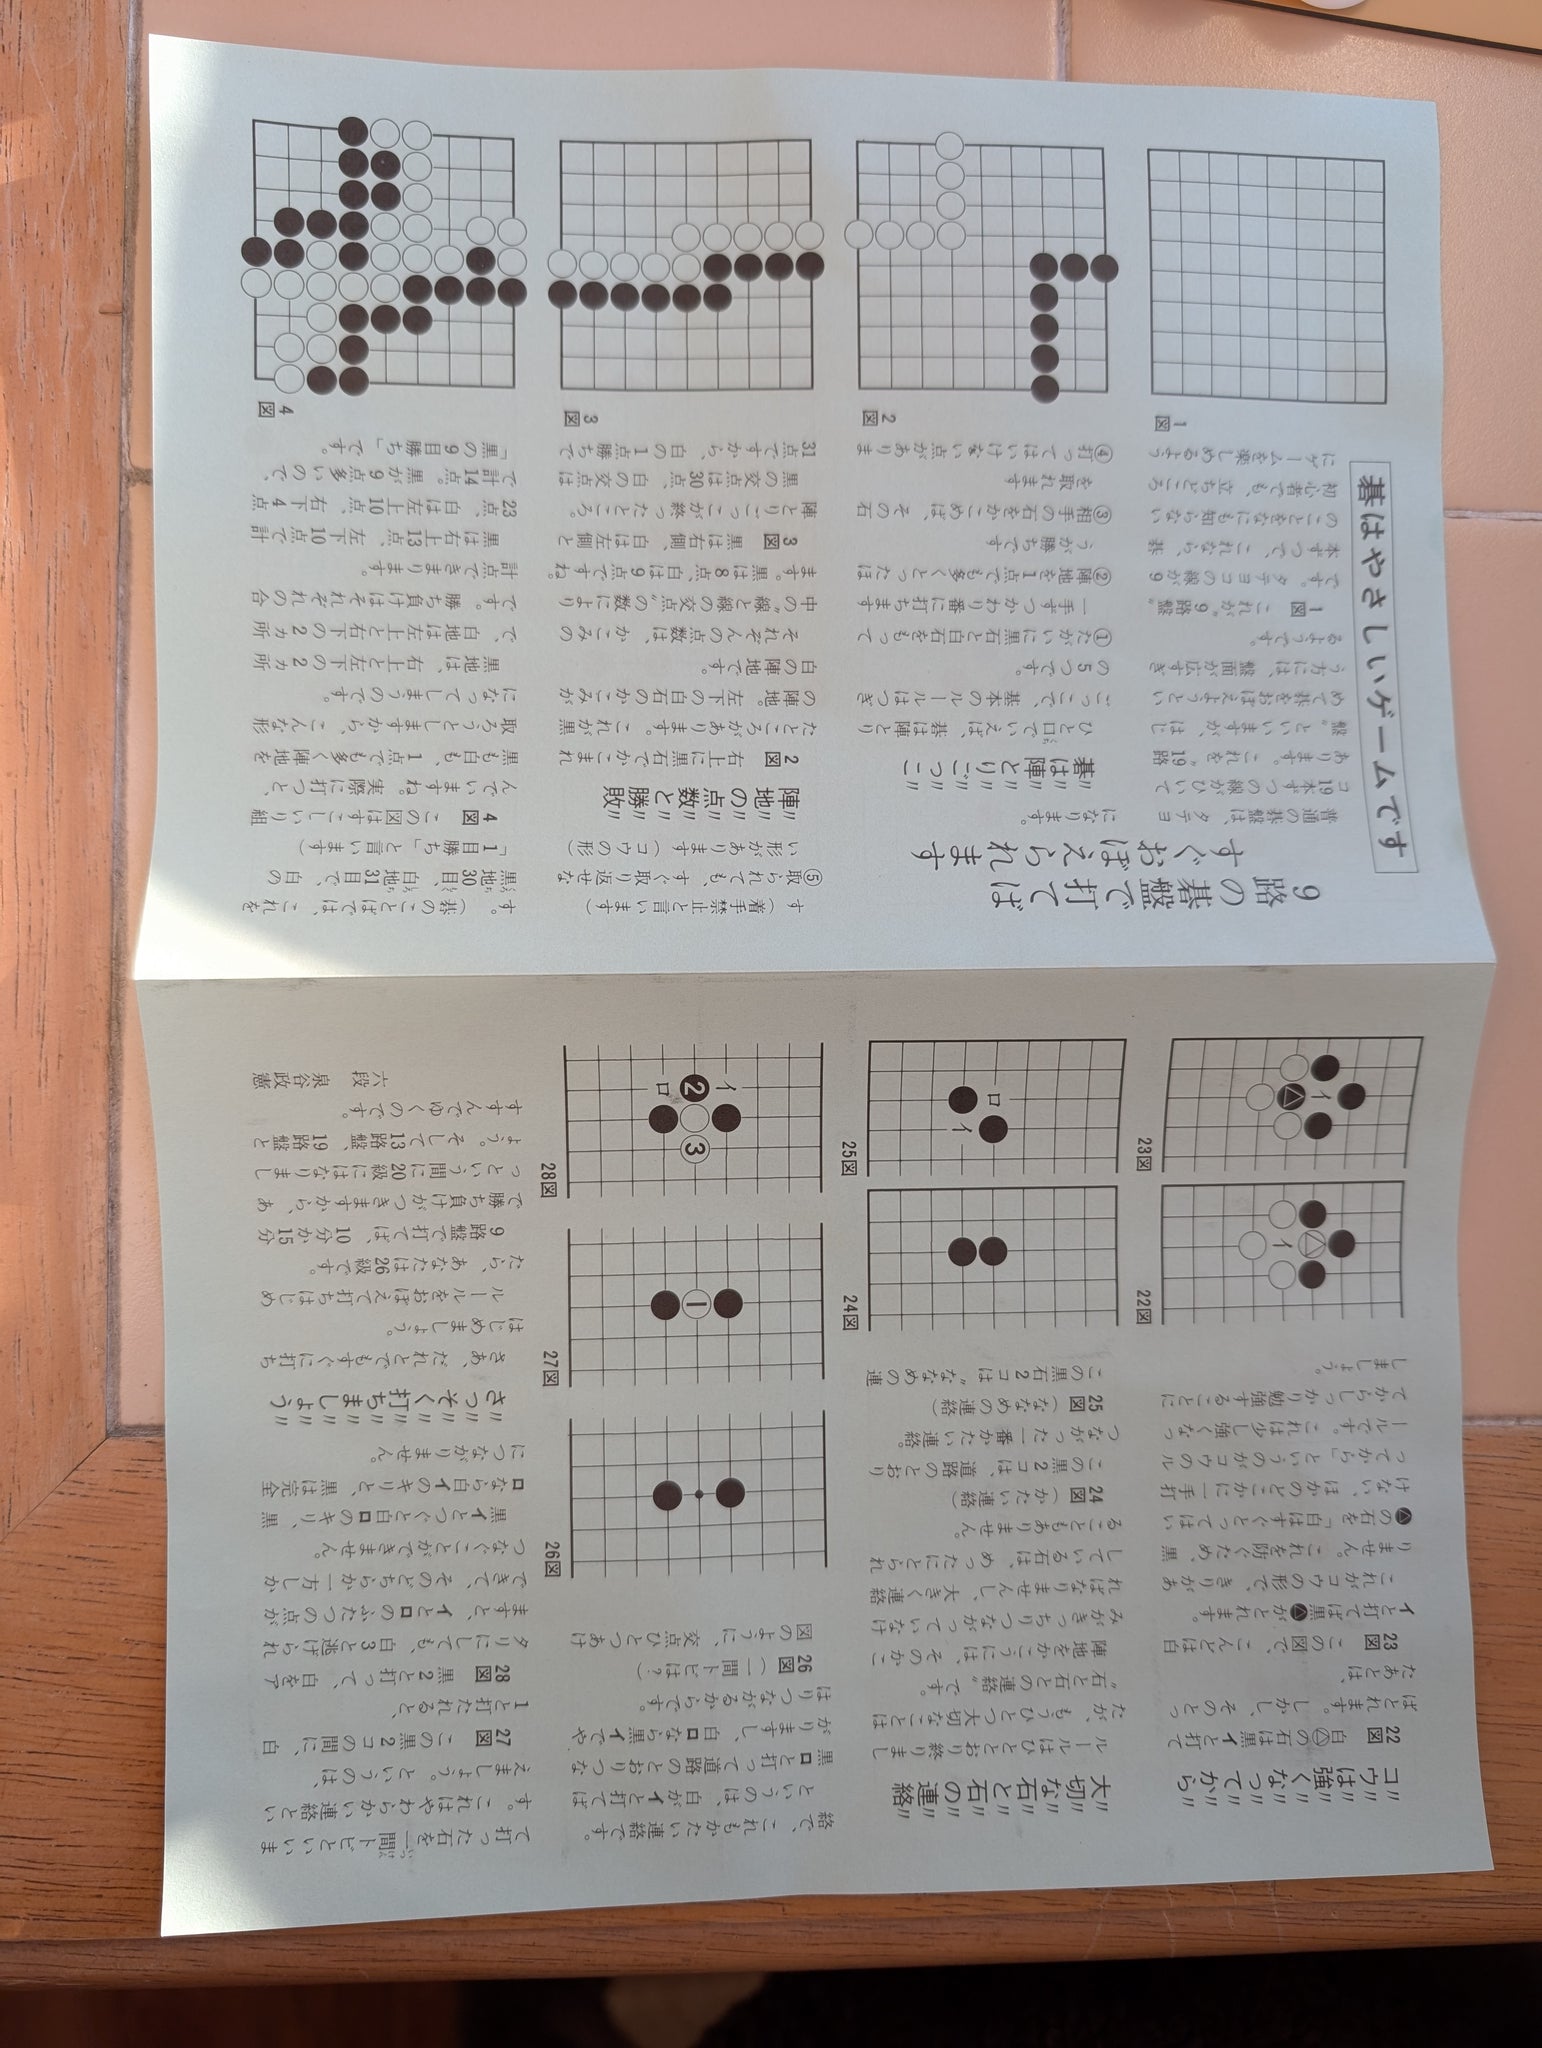 碁はやさしいゲームです
9路の碁盤で打てば
すぐおぼえられます
普通の碁盤は、タテヨ
コ19本ずつの線がひいて
あります。これを〝19路
盤〟といいますが、はじ
めて碁をおぼえようとい
う方には、盤面が広すぎ
るようです。
1図 これが〝9路盤〟
です。タテヨコの線が9
本ずつで、これなら、碁
のことをなにも知らない
初心者でも、立ちどころ
にゲームを楽しめるよう
1図
になります。
碁は陣とりごっこ
ひと口でいえば、碁は陣とり
ごっこで、基本のルールはつぎ
の5つです。
①たがいに黒石と白石をもって
一手ずつかわり番に打ちます
②陣地を1点でも多くとったほ
うが勝ちです
③相手の石をかこめば、その石
を取れます
④打ってはいけない点がありま
2図
す(着手禁止と言います)
⑤取られても、すぐ取り返せな
い形があります(コウの形)
陣地の点数と勝敗
2図 右上に黒石でかこまれ
たところがあります。これが黒
の陣地。左下の白石のかこみが
白の陣地です。
それぞれの点数は、かこみの
中の〝線と線の交点〟の数により
ます。黒は8点、白は9点ですね。
3図 黒は右側、白は左側と
陣とりごっこが終ったところ。
黒の交点は30点、白の交点は
31点ですから、白の1点勝ちで
3図
す。(碁のことばでは、これを
黒地30目、白地31目で、白の
「1目勝ち」と言います)
4図 この図はすこしいり組
んでいますね。実際に打つと、
黒も白も、1点でも多く陣地を
取ろうとしますから、こんな形
になってしまうのです。
黒地は、右上と左下の2ヵ所
で、白地は左上と右下の2ヵ所
です。勝ち負けはそれぞれの合
計点できまります。
黒は右上13点、左下10点で計
23点、白は左上10点、右下4点
で計14点。黒が9点多いので、
「黒の9目勝ち」です。
4図
コウは強くなってから
22図 白△の石は黒イと打て
ばとれます。しかし、そのとっ
たあとは、
23図 この図で、こんどは白
イと打てば黒▲がとれます。
これがコウの形で、きりがあ
りません。これを防ぐため、黒
▲の石を「白はすぐとってはい
けない、ほかのどこかに一手打
ってから」というのがコウのル
ールです。これは少し強くなっ
てからしっかり勉強することに
しましょう。
22図
イ
23図
イ
大切な石と石の連絡
ルールはひととおり終りまし
たが、もうひとつ大切なことは
〝石と石との連絡〟です。
陣地をかこうには、そのかこ
みがきっちりつながっていなけ
ればなりませんし、大きく連絡
している石は、めったにとられ
ることもありません。
24図 (かたい連絡)
この黒2コは、道路のとおり
つながった一番かたい連絡。
25図 (ななめの連絡)
この黒石2コは〝ななめの連
24図
25図
イ
ロ
絡で、これもかたい連絡です。
というのは、白がイと打てば
黒ロと打って道路のとおりつな
がりますし、白ロなら黒イでや
はりつながるからです。
26図 (一間トビは?)
図のように、交点ひとつあけ
26図
27図
1
28図
イ
2
ロ
3
て打った石を一間トビといいま
す。これはやわらかい連絡とい
えましょう。というのは、
27図 この黒2コの間に、白
1と打たれると、
28図 黒2と打って、白をア
タリにしても、白3と逃げられ
ますと、イとロのふたつの点が
できて、そのどちらか一方しか
つなぐことができません。
黒イとつぐと白ロのキリ、黒
ロなら白イのキリと、黒は完全
につながりません。
さっそく打ちましょう
さあ、だれとでもすぐに打ち
はじめましょう。
ルールをおぼえて打ちはじめ
たら、あなたは26級です。
9路盤で打てば、10分か15分
で勝ち負けがつきますから、あ
っという間に20級にはなりまし
ょう。そして13路盤、19路盤と
すすんでゆくのです。
六段 泉谷政憲